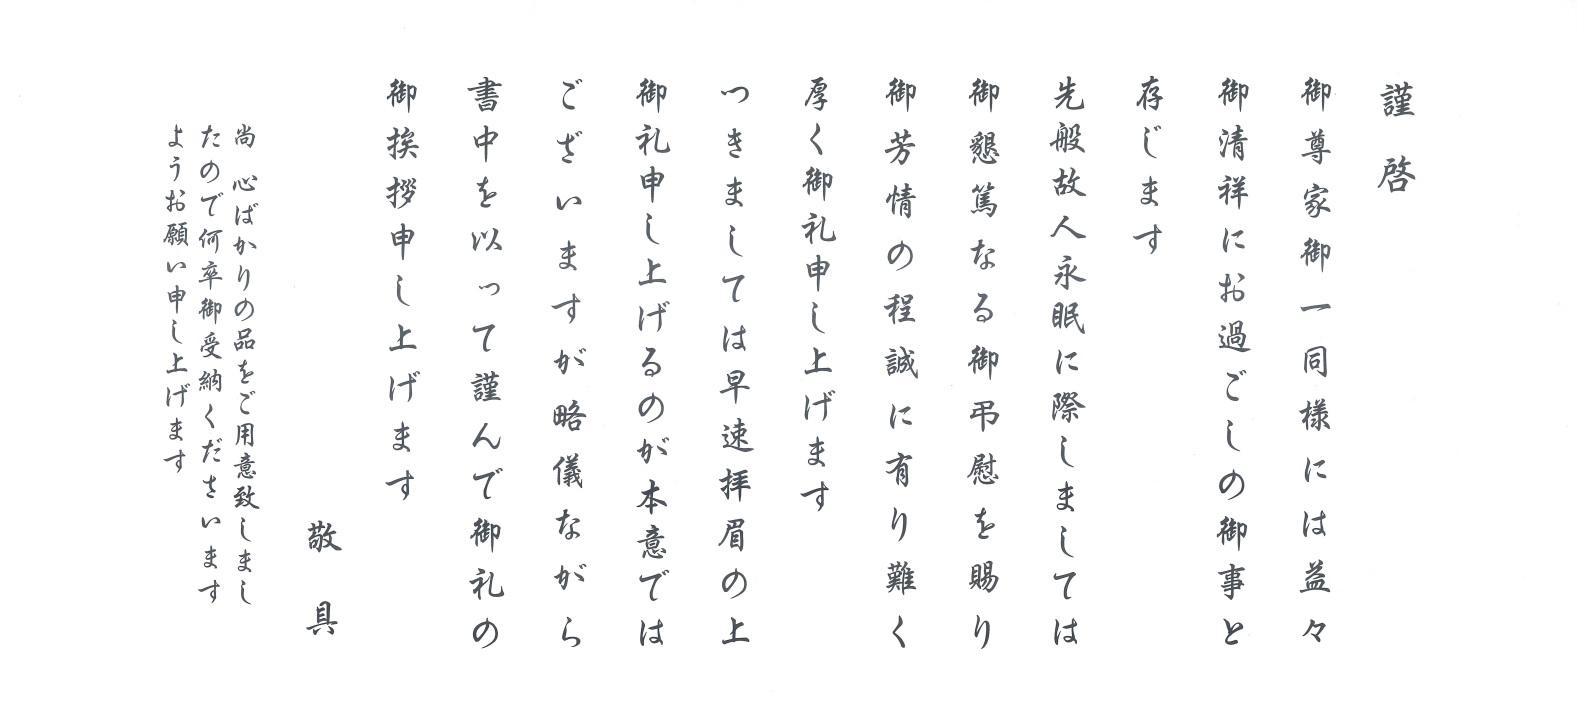 謹啓
御尊家御一同様には益々
御清祥にお過ごしの御事と
存じます
先般故人永眠に際しましては
御懇篤なる御弔慰を賜り
御芳情の程誠に有り難く
厚く御礼申し上げます
つきましては早速拝眉の上
御礼申し上げるのが本意では
ございますが略儀ながら
書中を以って謹んで御礼の
御挨拶申し上げます
敬具
尚 心ばかりの品をご用意致しまし
たので何卒御受納くださいます
ようお願い申し上げます